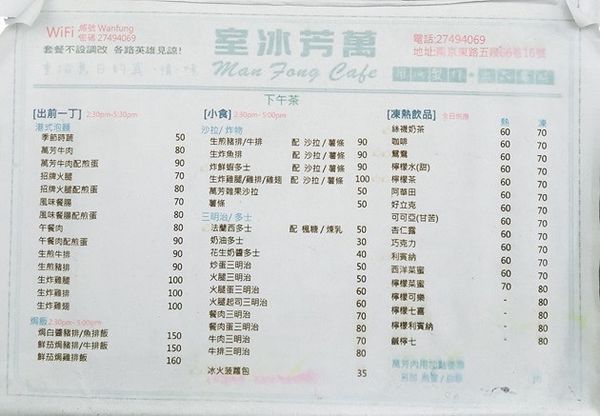 WiFi 帳號 Wanfung
密碼 27494069
套餐不設調改 各路英雄見諒!
室冰芳萬
Man Fong Cafe
電話:27494069
地址:南京東路五段66巷16號
下午茶
[出前一丁] 2:30pm-5:30pm
港式泡麵
季節時蔬 50
萬芳牛肉 80
萬芳牛肉配煎蛋 90
招牌火腿 70
招牌火腿配煎蛋 80
風味餐腸 70
風味餐腸配煎蛋 80
午餐肉 80
午餐肉配煎蛋 90
生煎牛排 90
生煎豬排 90
生炸雞腿 100
生炸雞排 100
生炸雞翅 100
焗飯 2:30pm-5:00pm
焗白醬豬排/魚排飯 150
鮮茄焗豬排/牛排飯 150
鮮茄焗雞排飯 160
[小食] 2:30pm-5:00pm
沙拉/炸物
生煎豬排/牛排 配 沙拉/薯條 90
生炸魚排 配 沙拉/薯條 90
炸鮮蝦多士 配 沙拉/薯條 90
生炸雞腿/雞排/雞翅 配 沙拉/薯條 100
萬芳雜果沙拉 50
薯條 50
三明治/多士
法蘭西多士 配 楓糖/煉乳 50
奶油多士 30
花生奶醬多士 40
炒蛋三明治 50
火腿三明治 50
火腿蛋三明治 60
火腿起司三明治 60
餐肉三明治 70
餐肉蛋三明治 80
牛肉三明治 70
牛排三明治 80
冰火菠蘿包 35
[凍熱飲品] 全日供應 熱 凍
絲襪奶茶 60 70
咖啡 60 70
鴛鴦 60 70
檸檬水(甜) 60 70
檸檬茶 60 70
阿華田 60 70
好立克 60 70
可可亞(甘苦) 60 70
杏仁露 60 70
巧克力 60 70
利賓納 60 70
西洋菜蜜 60 70
檸檬菜蜜 70 80
檸檬可樂 - 80
檸檬七喜 - 80
檸檬利賓納 - 80
鹹檸七 - 80